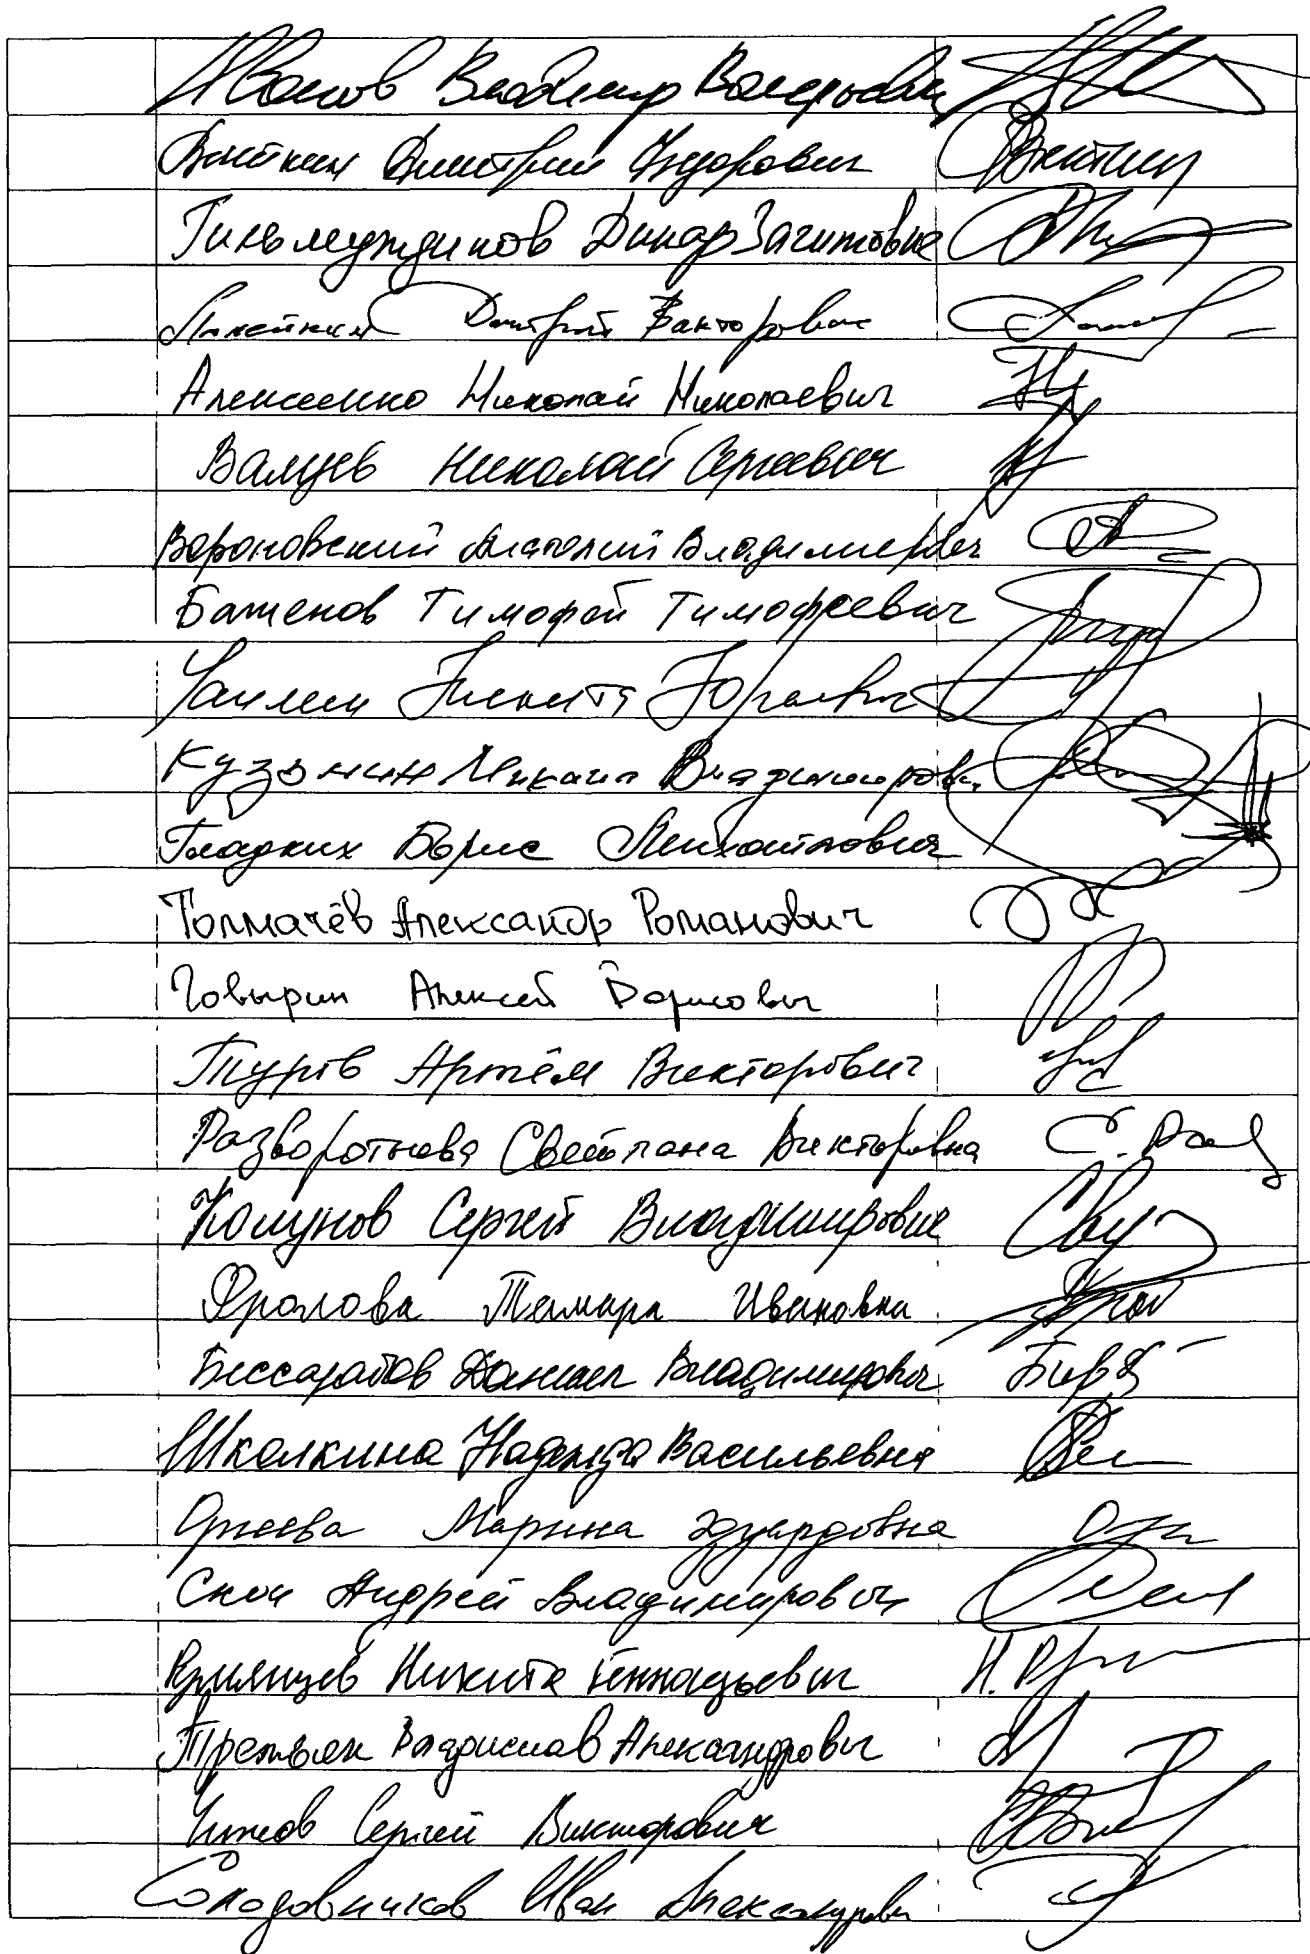 Иванов Владимир Валерьевич
Дмитрий
Гильмутдинов Динар Загитович
Дмитрий Викторович
Алексеенко Николай Николаевич
Валуев Николай Сергеевич
Вороновский Анатолий Владимирович
Баженов Тимофей Тимофеевич
Чаплин Никита Юрьевич
Михаил Владимирович
Гладких Борис Михайлович
Толмачёв Александр Романович
Говырин Алексей Борисович
Туров Артём Викторович
Разворотнева Светлана Викторовна С. Раз
Колунов Сергей Владимирович
Фролова Тамара Ивановна
Бессарабов Даниил Владимирович
Школкина Надежда Васильевна
Оргеева Марина Эдуардовна
Скоч Андрей Владимирович
Румянцев Никита Геннадьевич
Третьяк Владислав Александрович
Чижов Сергей Викторович
Солодовников Иван Александрович